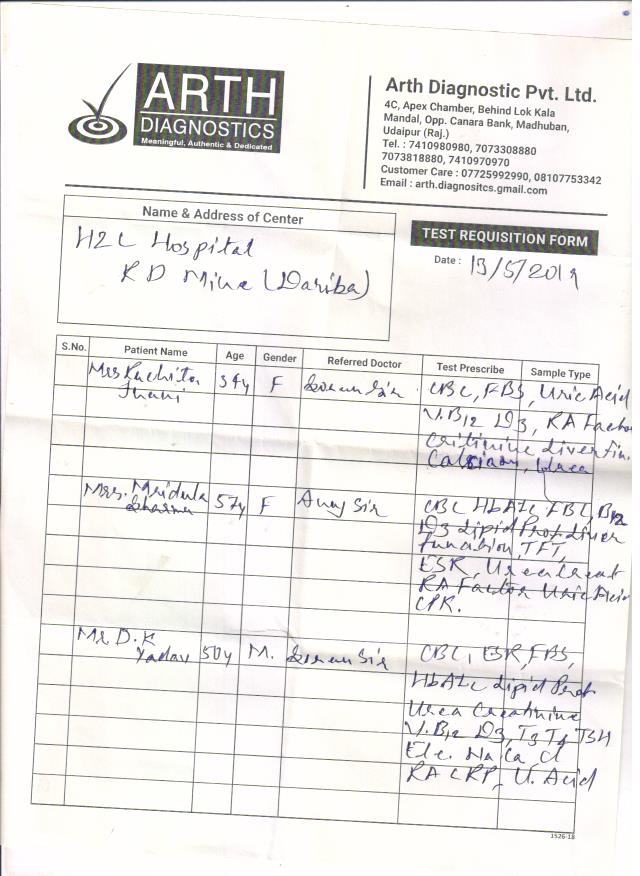 ARTH
DIAGNOSTICS
Meaningful, Authentic & Dedicated
Arth Diagnostic Pvt. Ltd.
4C, Apex Chamber, Behind Lok Kala
Mandal, Opp. Canara Bank, Madhuban,
Udaipur (Raj.)
Tel. : 7410980980, 7073308880
7073818880, 7410970970
Customer Care : 07725992990, 08107753342
Email : arth.diagnositcs.gmail.com
Name & Address of Center
HZL Hospital
RD Mine (Dariba)
TEST REQUISITION FORM
Date : 13/5/2019
S.No. Patient Name Age Gender Referred Doctor Test Prescribe Sample Type
Mrs Ruchita 34y F Sir CBC, FBS, Uric Acid
V.B12 D3, RA Factor
Critinine liver fun.
Calcium, Urea
Mrs. Mridula 57y F Anuj Sir CBC HbA1c FBC, B12
Sharma D3 Lipid Prof Liver
function, TFT,
ESR, Urea Creat
RA Factor Uric Acid
CPK.
Mr D.K
Yadav 50y M. Sir CBC, ESR, FBS,
HbA1c Lipid Prof
Urea Creatinine
V.B12 D3, T3 T4 TSH
Ele. Na Ca Cl
RA CRP, U. Acid
1526-18